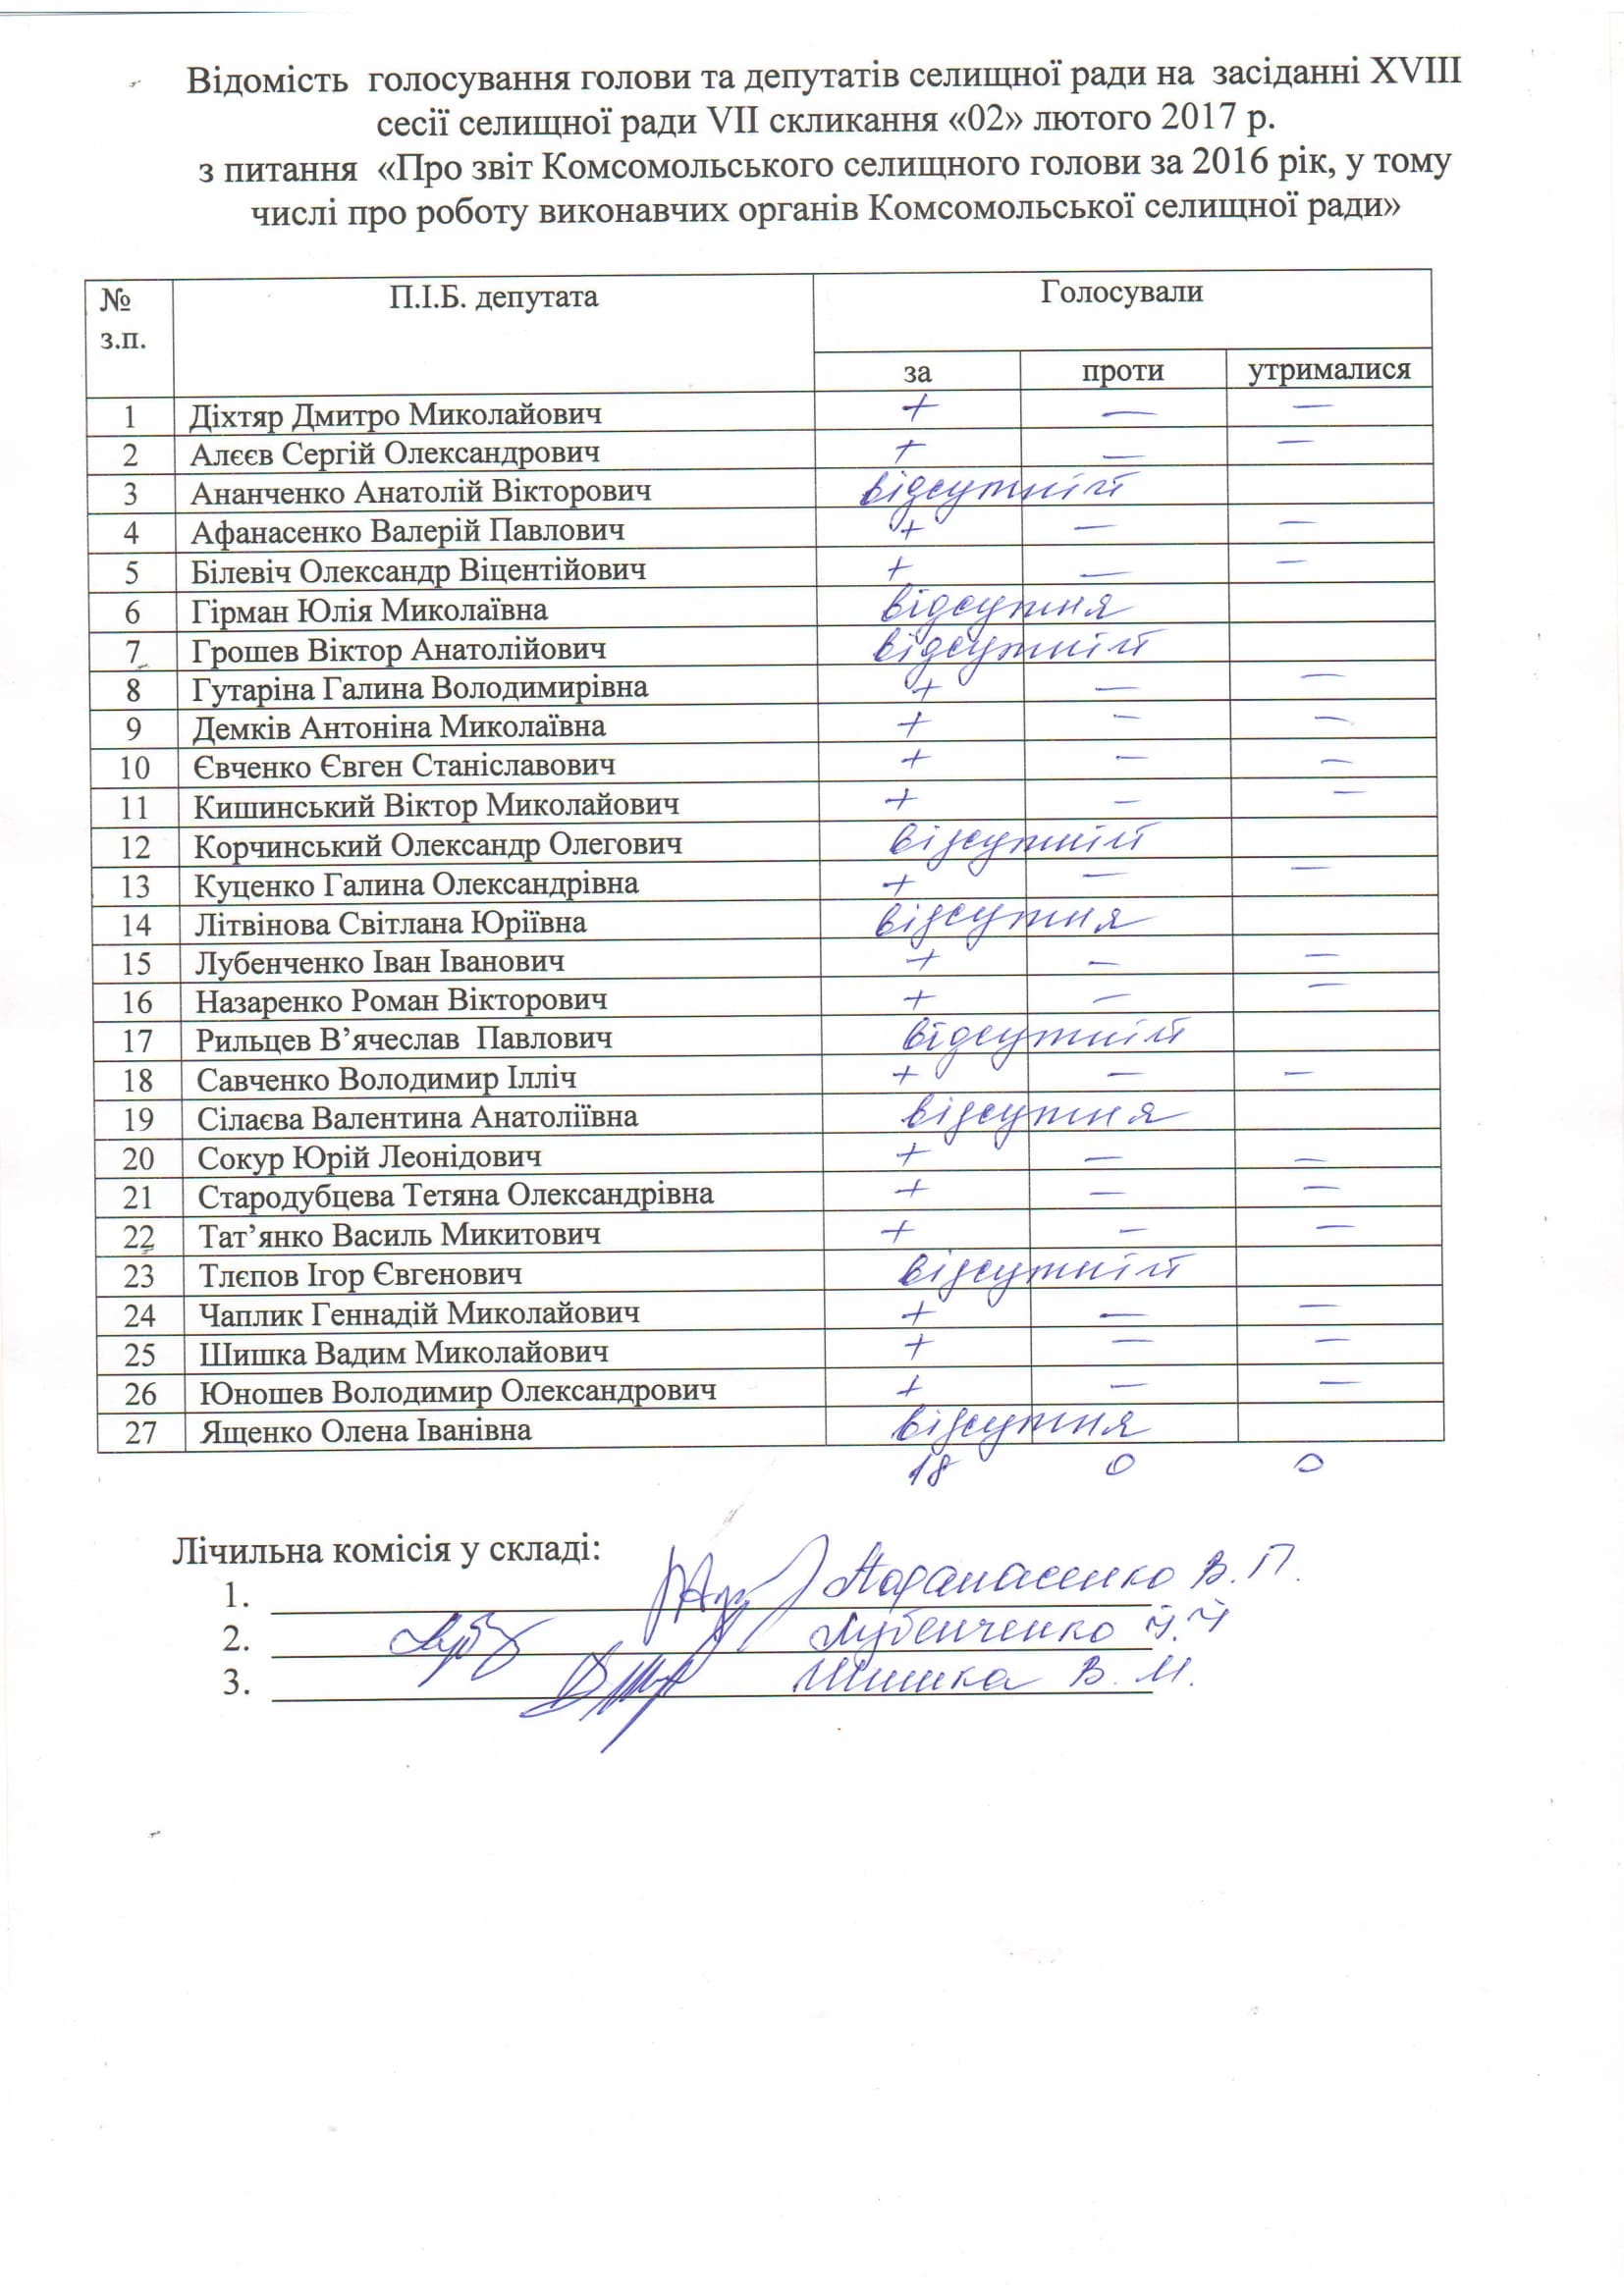 Відомість голосування голови та депутатів селищної ради на засіданні XVIII
сесії селищної ради VII скликання «02» лютого 2017 р.
з питання «Про звіт Комсомольського селищного голови за 2016 рік, у тому
числі про роботу виконавчих органів Комсомольської селищної ради»
№ з.п. П.І.Б. депутата Голосували
за проти утрималися
1 Діхтяр Дмитро Миколайович + — —
2 Алєєв Сергій Олександрович + — —
3 Ананченко Анатолій Вікторович відсутній
4 Афанасенко Валерій Павлович + — —
5 Білевіч Олександр Віцентійович + — —
6 Гірман Юлія Миколаївна відсутня
7 Грошев Віктор Анатолійович відсутній
8 Гутаріна Галина Володимирівна + — —
9 Демків Антоніна Миколаївна + — —
10 Євченко Євген Станіславович + — —
11 Кишинський Віктор Миколайович + — —
12 Корчинський Олександр Олегович відсутній
13 Куценко Галина Олександрівна + — —
14 Літвінова Світлана Юріївна відсутня
15 Лубенченко Іван Іванович + — —
16 Назаренко Роман Вікторович + — —
17 Рильцев В’ячеслав Павлович відсутній
18 Савченко Володимир Ілліч + — —
19 Сілаєва Валентина Анатоліївна відсутня
20 Сокур Юрій Леонідович + — —
21 Стародубцева Тетяна Олександрівна + — —
22 Тат’янко Василь Микитович + — —
23 Тлєпов Ігор Євгенович відсутній
24 Чаплик Геннадій Миколайович + — —
25 Шишка Вадим Миколайович + — —
26 Юношев Володимир Олександрович + — —
27 Ященко Олена Іванівна відсутня
18 0 0
Лічильна комісія у складі:
1. Афанасенко В.П.
2. Лубенченко І.І
3. Шишка В.М.